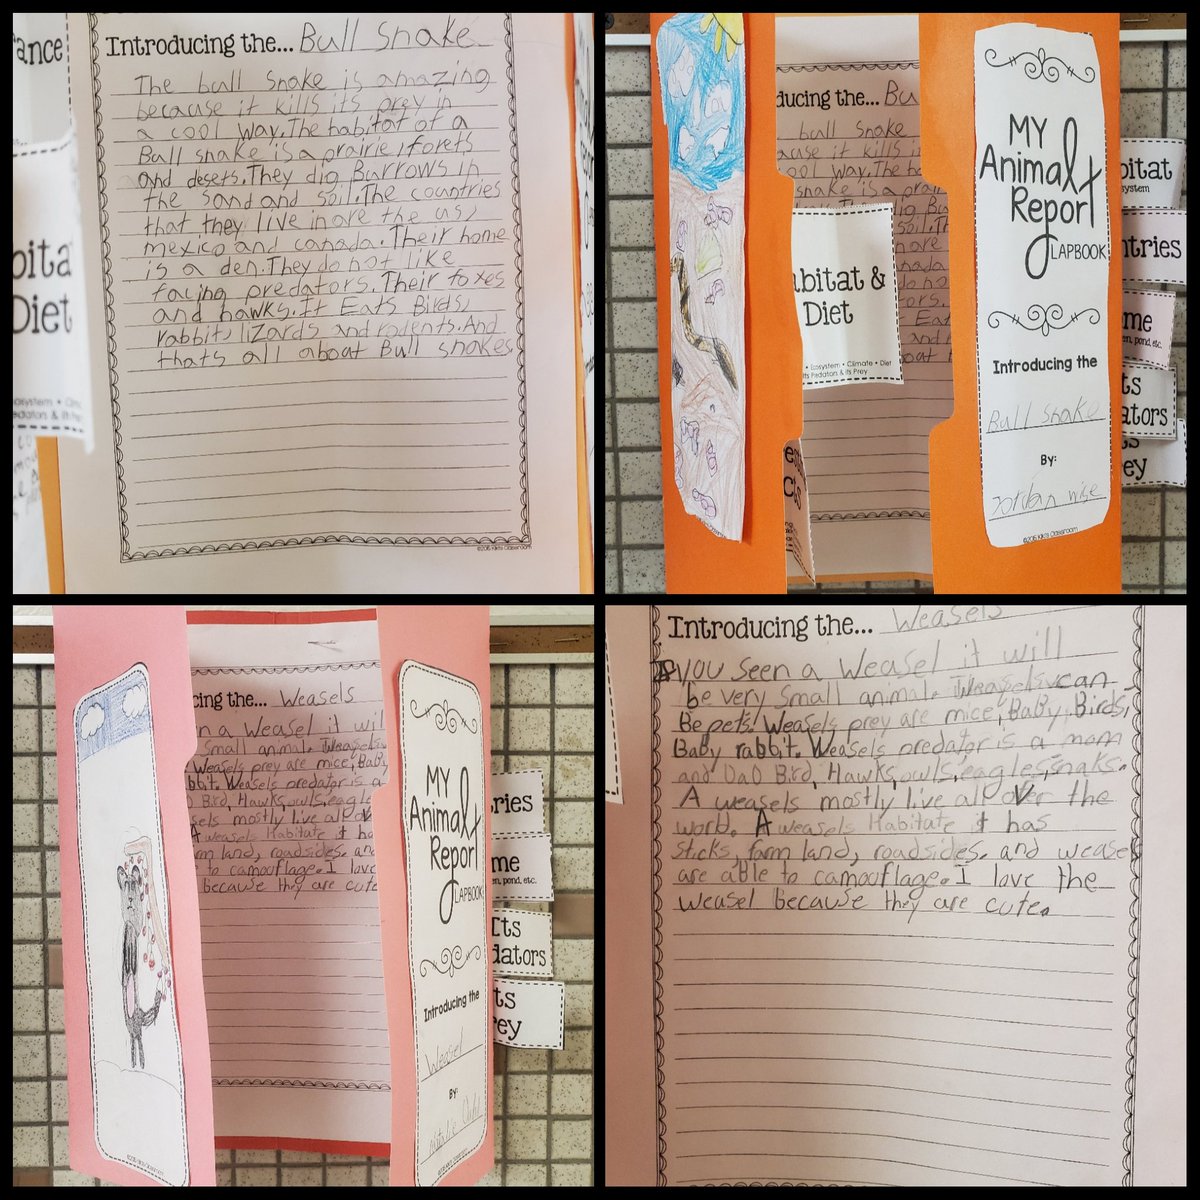 ance
Introducing the... Bull Snake
The bull snake is amazing
because it kills its prey in
a cool way. The habitat of a
Bull snake is a prairie, forets
and desets. They dig Burrows in
the sand and soil. The countries
that they live in are the us,
mexico and canada. Their home
is a den. They do not like
facing predators. Their foxes
and hawks. It Eats Birds,
rabbits lizards and rodents. And
thats all about Bull snakes
bitat
Diet
©2015 Kiki's Classroom
ducing the... Bu
bull snake
abitat &
Diet
• Ecosystem • Climate • Diet
Its Predators & Its Prey
MY
Animal
Report
LAPBOOK
Introducing the
Bull Snake
By:
Jordan Wise
©2015 Kiki's Classroom
bitat
system
ntries
me
en, pond, etc.
ts
ators
ts
ey
cing the... Weasels
n a Weasel it wil
small animal. Weasels
Weasels prey are mice, Baby
bbit. Weasels predator is a
D Bird, Hawks, owls, eagle
sels mostly live all ov
A weasels Habitate it ha
rm land, roadsides. and
to camouflage. I love
because they are cute
MY
Animal
Report
LAPBOOK
Introducing the
Weasel
By:
ries
me
en, pond, etc.
Its
dators
ts
rey
Introducing the... Weasels
you seen a Weasel it will
be very small animal. Weasels can
Be pets. Weasels prey are mice, Baby, Birds,
Baby rabbit. Weasels predator is a mom
and DaD Bird, Hawks, owls, eagles, snaks.
A weasels mostly live all over the
world. A weasels Habitate it has
sticks, farm land, roadsides. and weasel
are able to camouflage. I love the
weasel because they are cute.